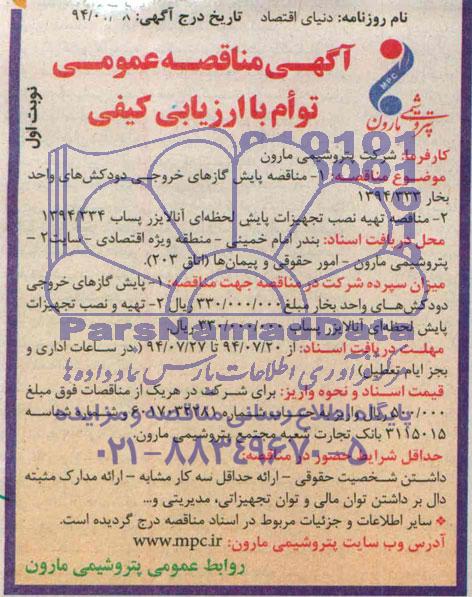 نام روزنامه: دنیای اقتصاد تاریخ درج آگهی:
MPC
پتروشیمی مارون
نوبت اول
آگهی مناقصه عمومی
توأم با ارزیابی کیفی
کارفرما: شرکت پتروشیمی مارون
موضوع مناقصه: ۱- مناقصه پایش گازهای خروجی دودکش‌های واحد
بخار ۱۳۹۴/۳۳۳
۲- مناقصه تهیه نصب تجهیزات پایش لحظه‌ای آنالایزر پساب ۱۳۹۴/۳۳۴
محل دریافت اسناد: بندر امام خمینی - منطقه ویژه اقتصادی - سایت ۲ -
پتروشیمی مارون - امور حقوقی و پیمان‌ها (اتاق ۲۰۳).
میزان سپرده شرکت در مناقصه جهت مناقصه: ۱- پایش گازهای خروجی
دودکش‌های واحد بخار مبلغ ۳۳۰/۰۰۰/۰۰۰ ریال ۲- تهیه و نصب تجهیزات
پایش لحظه‌ای آنالایزر پساب ۳۳۰/۰۰۰/۰۰۰ ریال
ParsNamadData
مهلت دریافت اسناد: از ۹۴/۰۷/۲۰ تا ۹۴/۰۷/۲۷ (در ساعات اداری و
بجز ایام تعطیل)
فرآوری اطلاعات پارس نماد داده ها
قیمت اسناد و نحوه واریز: برای شرکت در هریک از مناقصات فوق مبلغ
۵۰۰/۰۰۰ ریال واریز به حساب شماره شناسه
پایگاه اطلاع رسانی مناقصه و مزایده
۳۱۱۵۰۱۵ بانک تجارت شعبه مجتمع پتروشیمی مارون.
۰۲۱-۸۸۳۴۹۶۷۰-۵
حداقل شرایط حضور در مناقصه:
داشتن شخصیت حقوقی - ارائه حداقل سه کار مشابه - ارائه مدارک مثبته
دال بر داشتن توان مالی و توان تجهیزاتی، مدیریتی و...
❖ سایر اطلاعات و جزئیات مربوط در اسناد مناقصه درج گردیده است.
آدرس وب سایت پتروشیمی مارون: www.mpc.ir
روابط عمومی پتروشیمی مارون